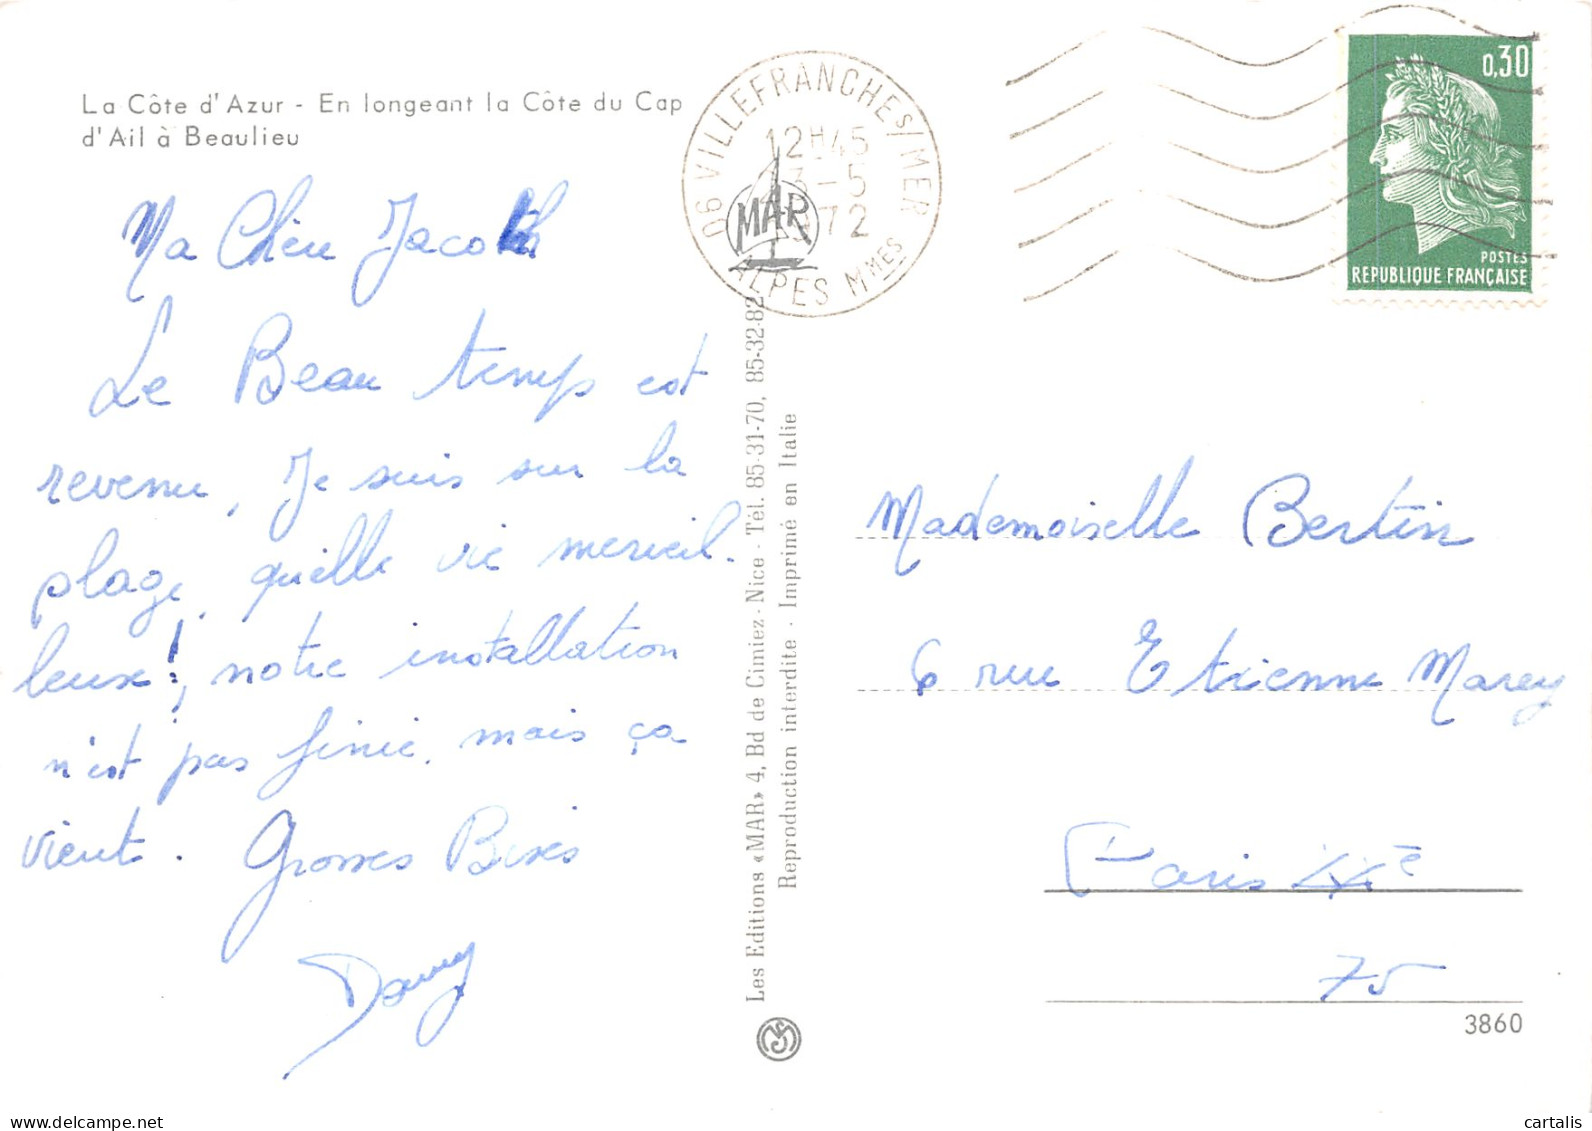 La Côte d'Azur - En longeant la Côte du Cap
d'Ail à Beaulieu
Ma Chère
Le Beau temps est
revenu, Je suis sur la
plage, quelle vie merveil-
leuse!, notre installation
n'est pas finie, mais ça
vient. Grosses Bises
Dany
06 VILLEFRANCHE S/MER
12H45
3-5
1972
ALPES MMES
MAR
Les Editions «MAR» 4, Bd de Cimiez - Nice - Tél. 85-31-70, 85-32-82
Reproduction interdite - Imprimé en Italie
0,30
POSTES
REPUBLIQUE FRANÇAISE
Mademoiselle Bertin
6 rue Etienne Marey
Paris XXe
75
3860
www.delcampe.net
cartalis